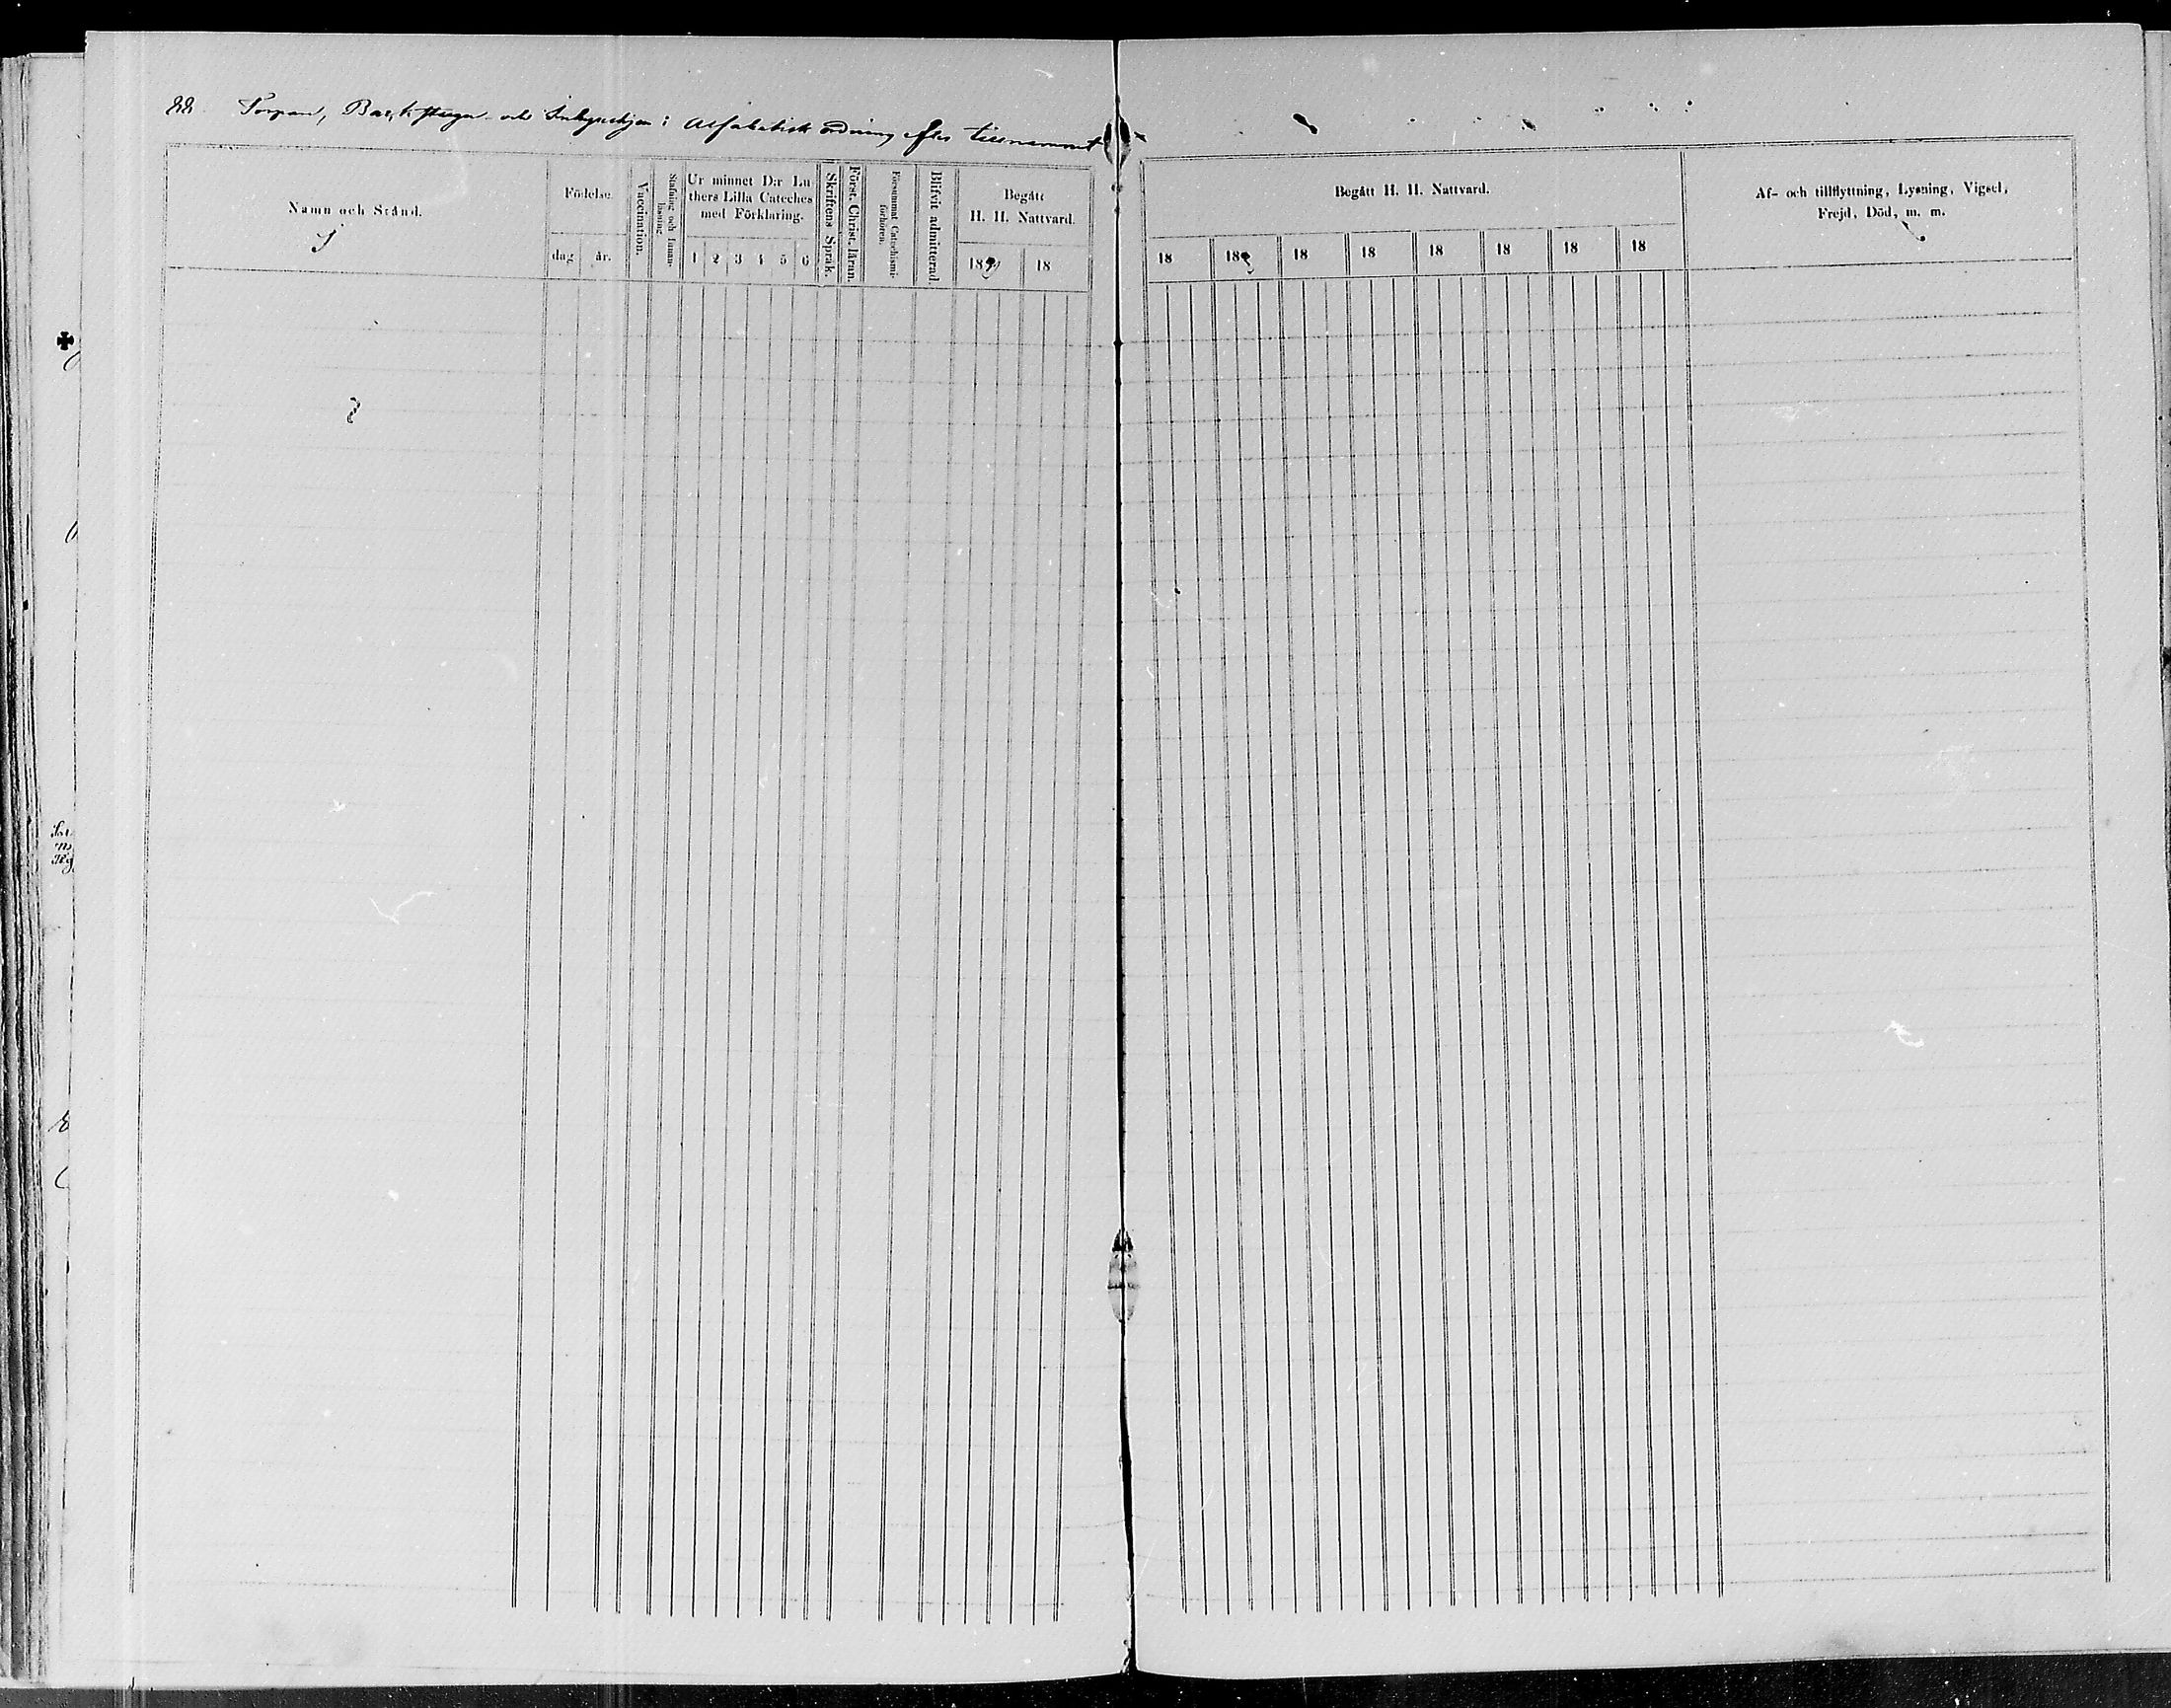 88. Torpare, Backstugu- och Inhyseshjon i Alfabetisk ordning efter tillnamnet
Namn och Stånd.
S
Födelse
dag
år.
Vaccination.
Stafning och Innanläsning
Ur minnet D:r Lu
thers Lilla Cateches
med Förklaring.
1 2 3 4 5 6
Skriftens Språk.
Först. Christ. läran.
Försummat Catechismi-
förhören.
Blifvit admitterad.
Begått
H. H. Nattvard.
18
18
Begått H. H. Nattvard.
18 18 18 18 18 18 18 18
Af- och tillflyttning, Lysning, Vigsel,
Frejd, Död, m. m.